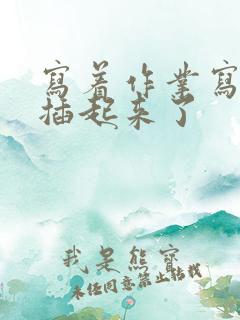 寫着作業寫
插起来了
我是熊寶
未经同意禁止转载